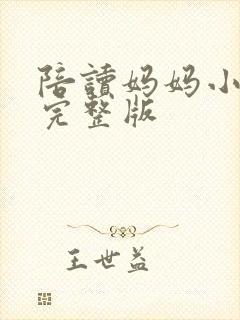 陪讀妈妈小
完整版
王世益